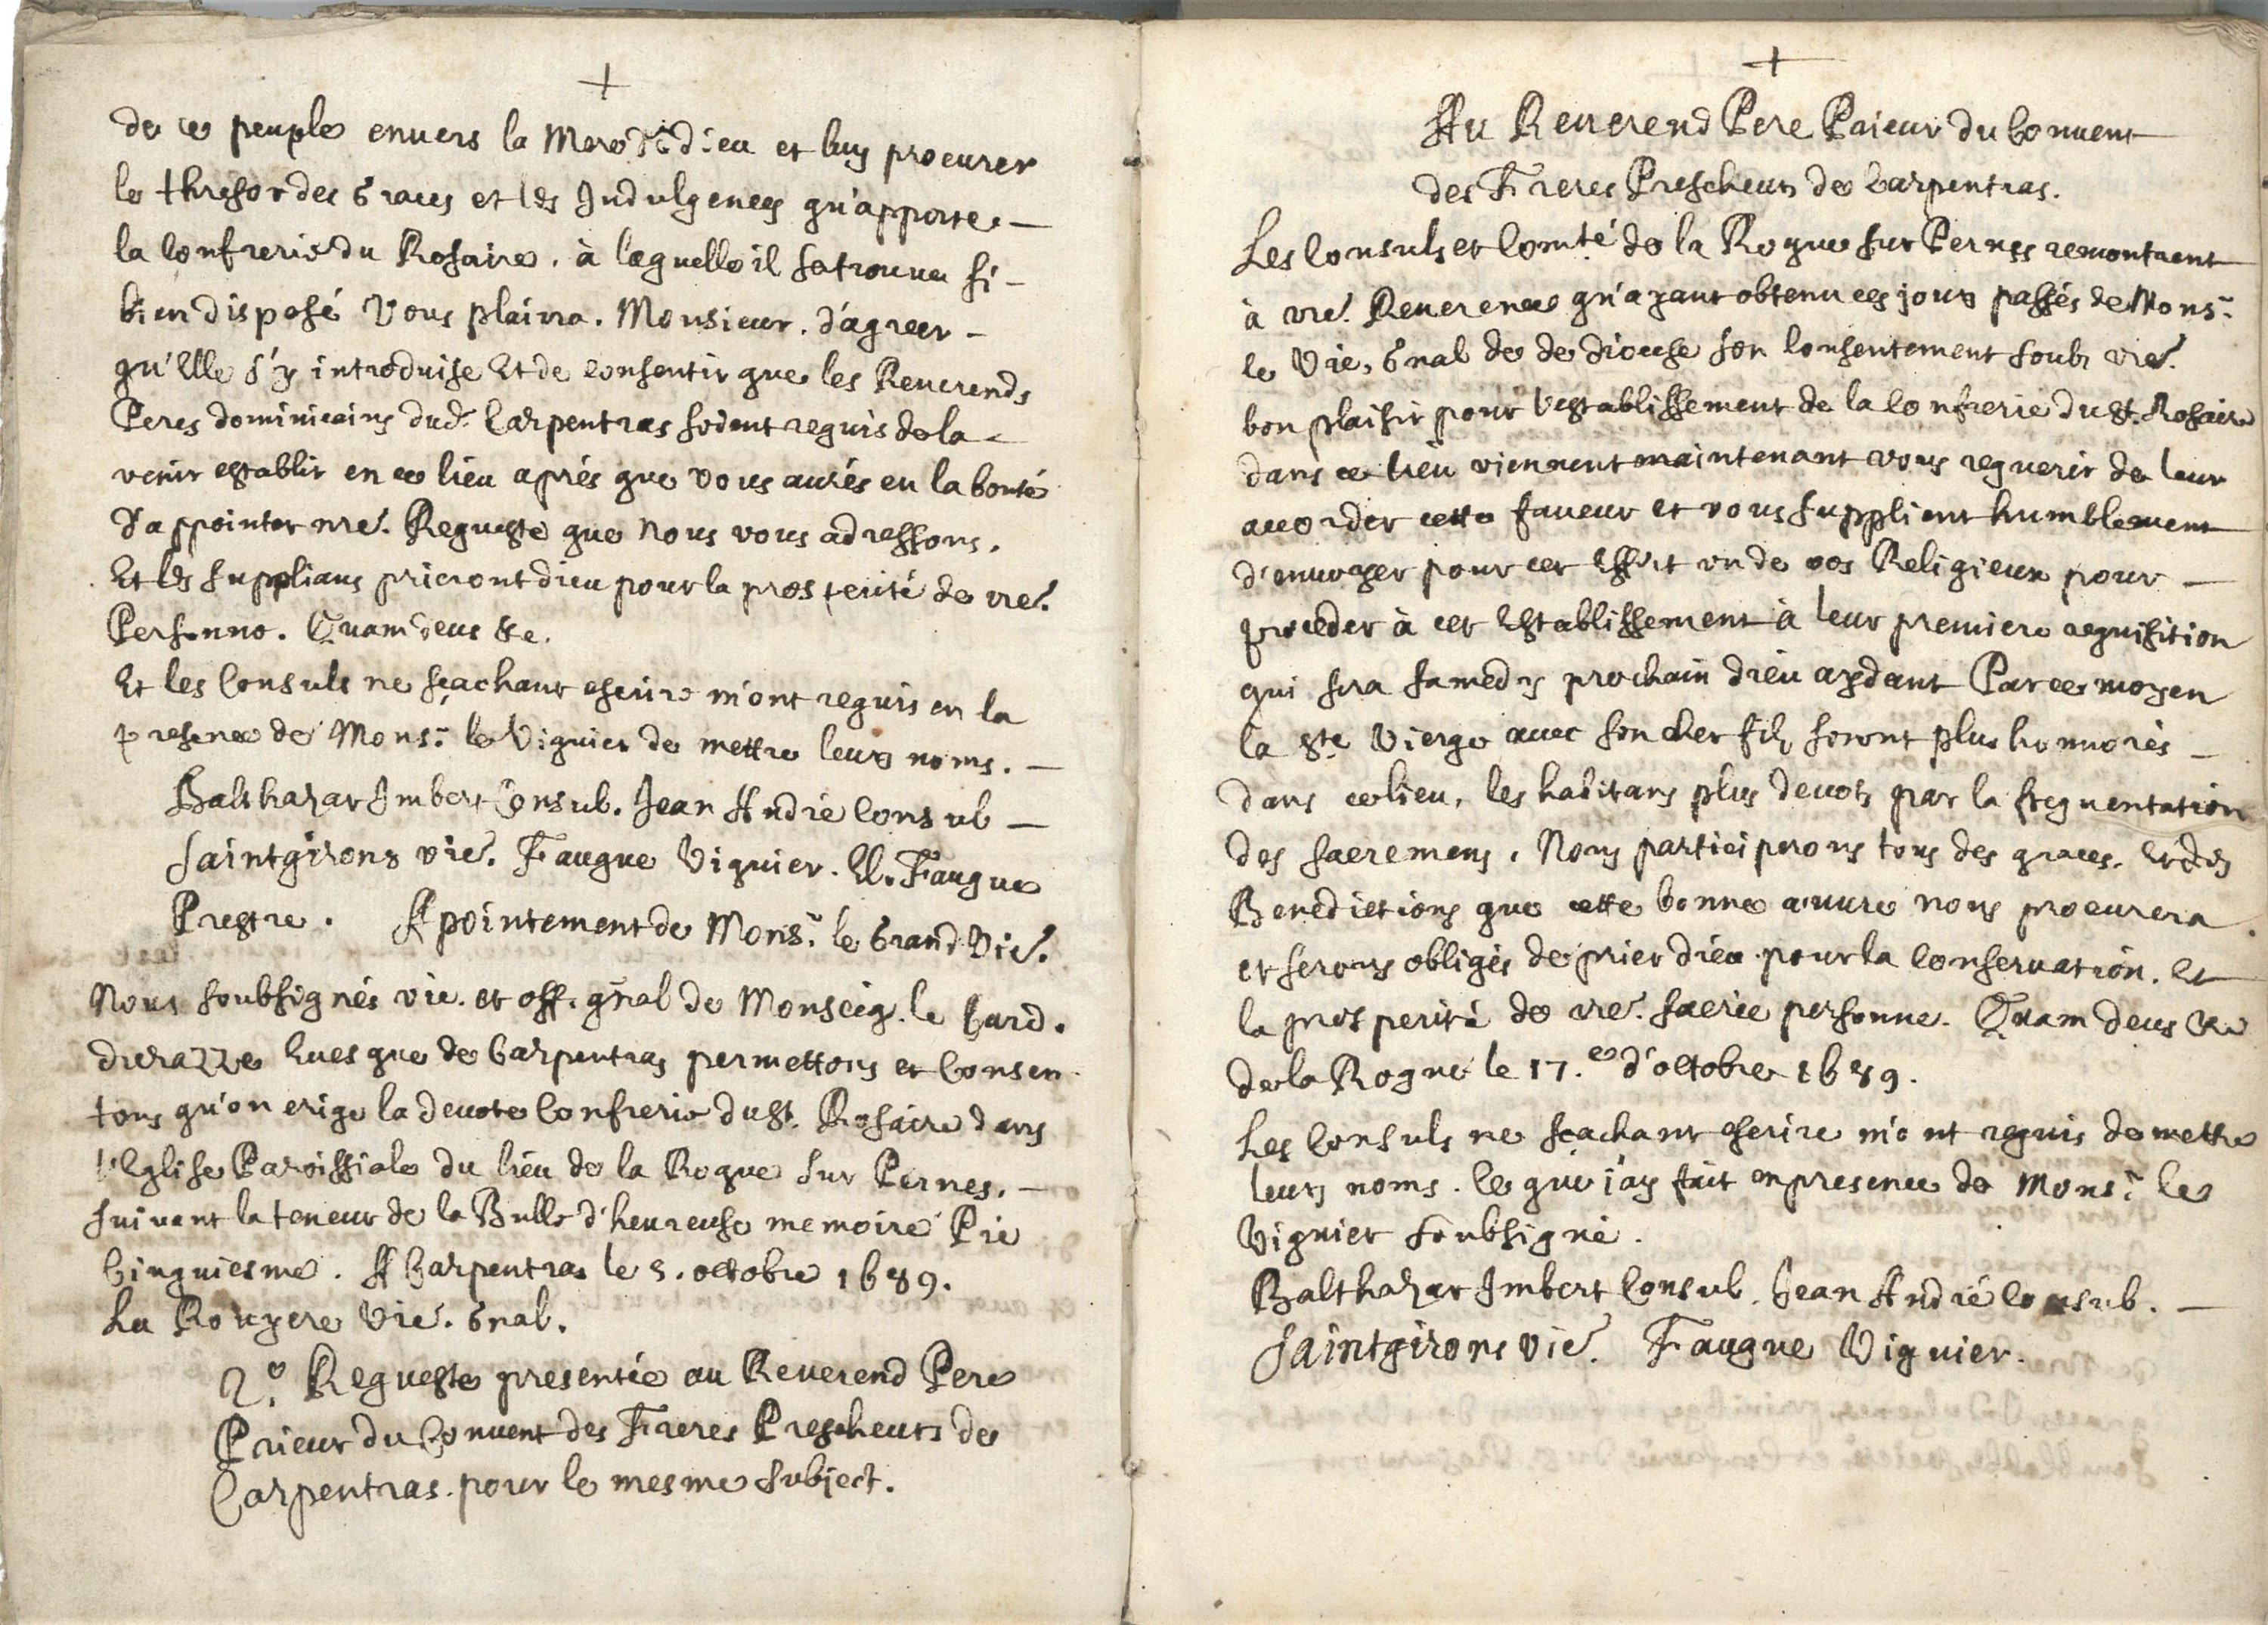 +
de ce peuple enuers la Mere de dieu et luy procurer
le thresor des Graces et les Indulgences qu'apporte
la Confrerie du Rosaire. à laquelle il se trouue si
bien disposé Vous plairra. Monsieur. d'agreer
qu'Elle s'y introduise Et de consentir que les Reuerends
Peres dominicains dud. Carpentras soient requis de la
venir establir en ce lieu aprés que vous aurés eu la bonté
d'appointer nre. Requeste que Nous vous adressons.
Et les supplians prieront dieu pour la prosperité de vre.
Personne. Quam deus &c.
Et les Consuls ne sçachant escrire m'ont requis en la
presence de Monsr. le Viguier de mettre leurs noms.
Balthazar Imbert Consul. Jean André Consul
Saintgirons vic. Faugue Viguier. El. Faugue
Prestre. Apointement de Monsr. le Grand Vic.
Nous soubsignés vic. et off. gnal de Monseig. le Card.
durazzo Euesque de Carpentras permettons et Consen
tons qu'on erige la deuote Confrerie du St. Rosaire dans
l'Eglise Paroissiale du lieu de la Roque sur Pernes.
suiuant la teneur de la Bulle d'heureuse memoire Pie
Cinquiesme. A Carpentras le 5. octobre 1689.
La Rouyere Vic. Gnal.
2.e Requeste presentée au Reuerend Pere
Prieur du Conuent des Freres Prescheurs de
Carpentras. pour le mesme subject.
+
Au Reuerend Pere Prieur du Conuent
des Freres Prescheurs de Carpentras.
Les Consuls et Comté de la Roque sur Pernes remontrent
à vre. Reuerence qu'ayant obtenu ces jours passés de Monsr.
le Vic. Gnal de de diocese son Consentement soubs vre.
bon plaisir pour l'establissement de la Confrerie du St. Rosaire
dans ce lieu viennent maintenant vous requerir de leur
accorder cette faueur et vous supplient humblement
d'enuoyer pour cet Effect un de vos Religieux pour
proceder à cet Establissement à leur premiere requisition
qui sera samedy prochain dieu aydant Par ce moyen
la Ste Vierge auec son cher fils seront plus honnorés
dans ce lieu, les habitans plus deuots par la frequentation
des sacremens, Nous participerons tous des graces. Et des
Benedictions que cette bonne œuure nous procurera
et serons obligés de prier dieu pour la Conseruation. Et
la prosperité de vre. sacrée personne. Quam deus &c
de la Roque le 17.e d'octobre 1689.
Les Consuls ne sçachant escrire m'ont requis de mettre
leurs noms. Ce que j'ay fait en presence de Monsr. le
Viguier soubsigné.
Balthazar Imbert Consul. Jean André Consul.
Saintgirons Vic. Faugue Viguier.